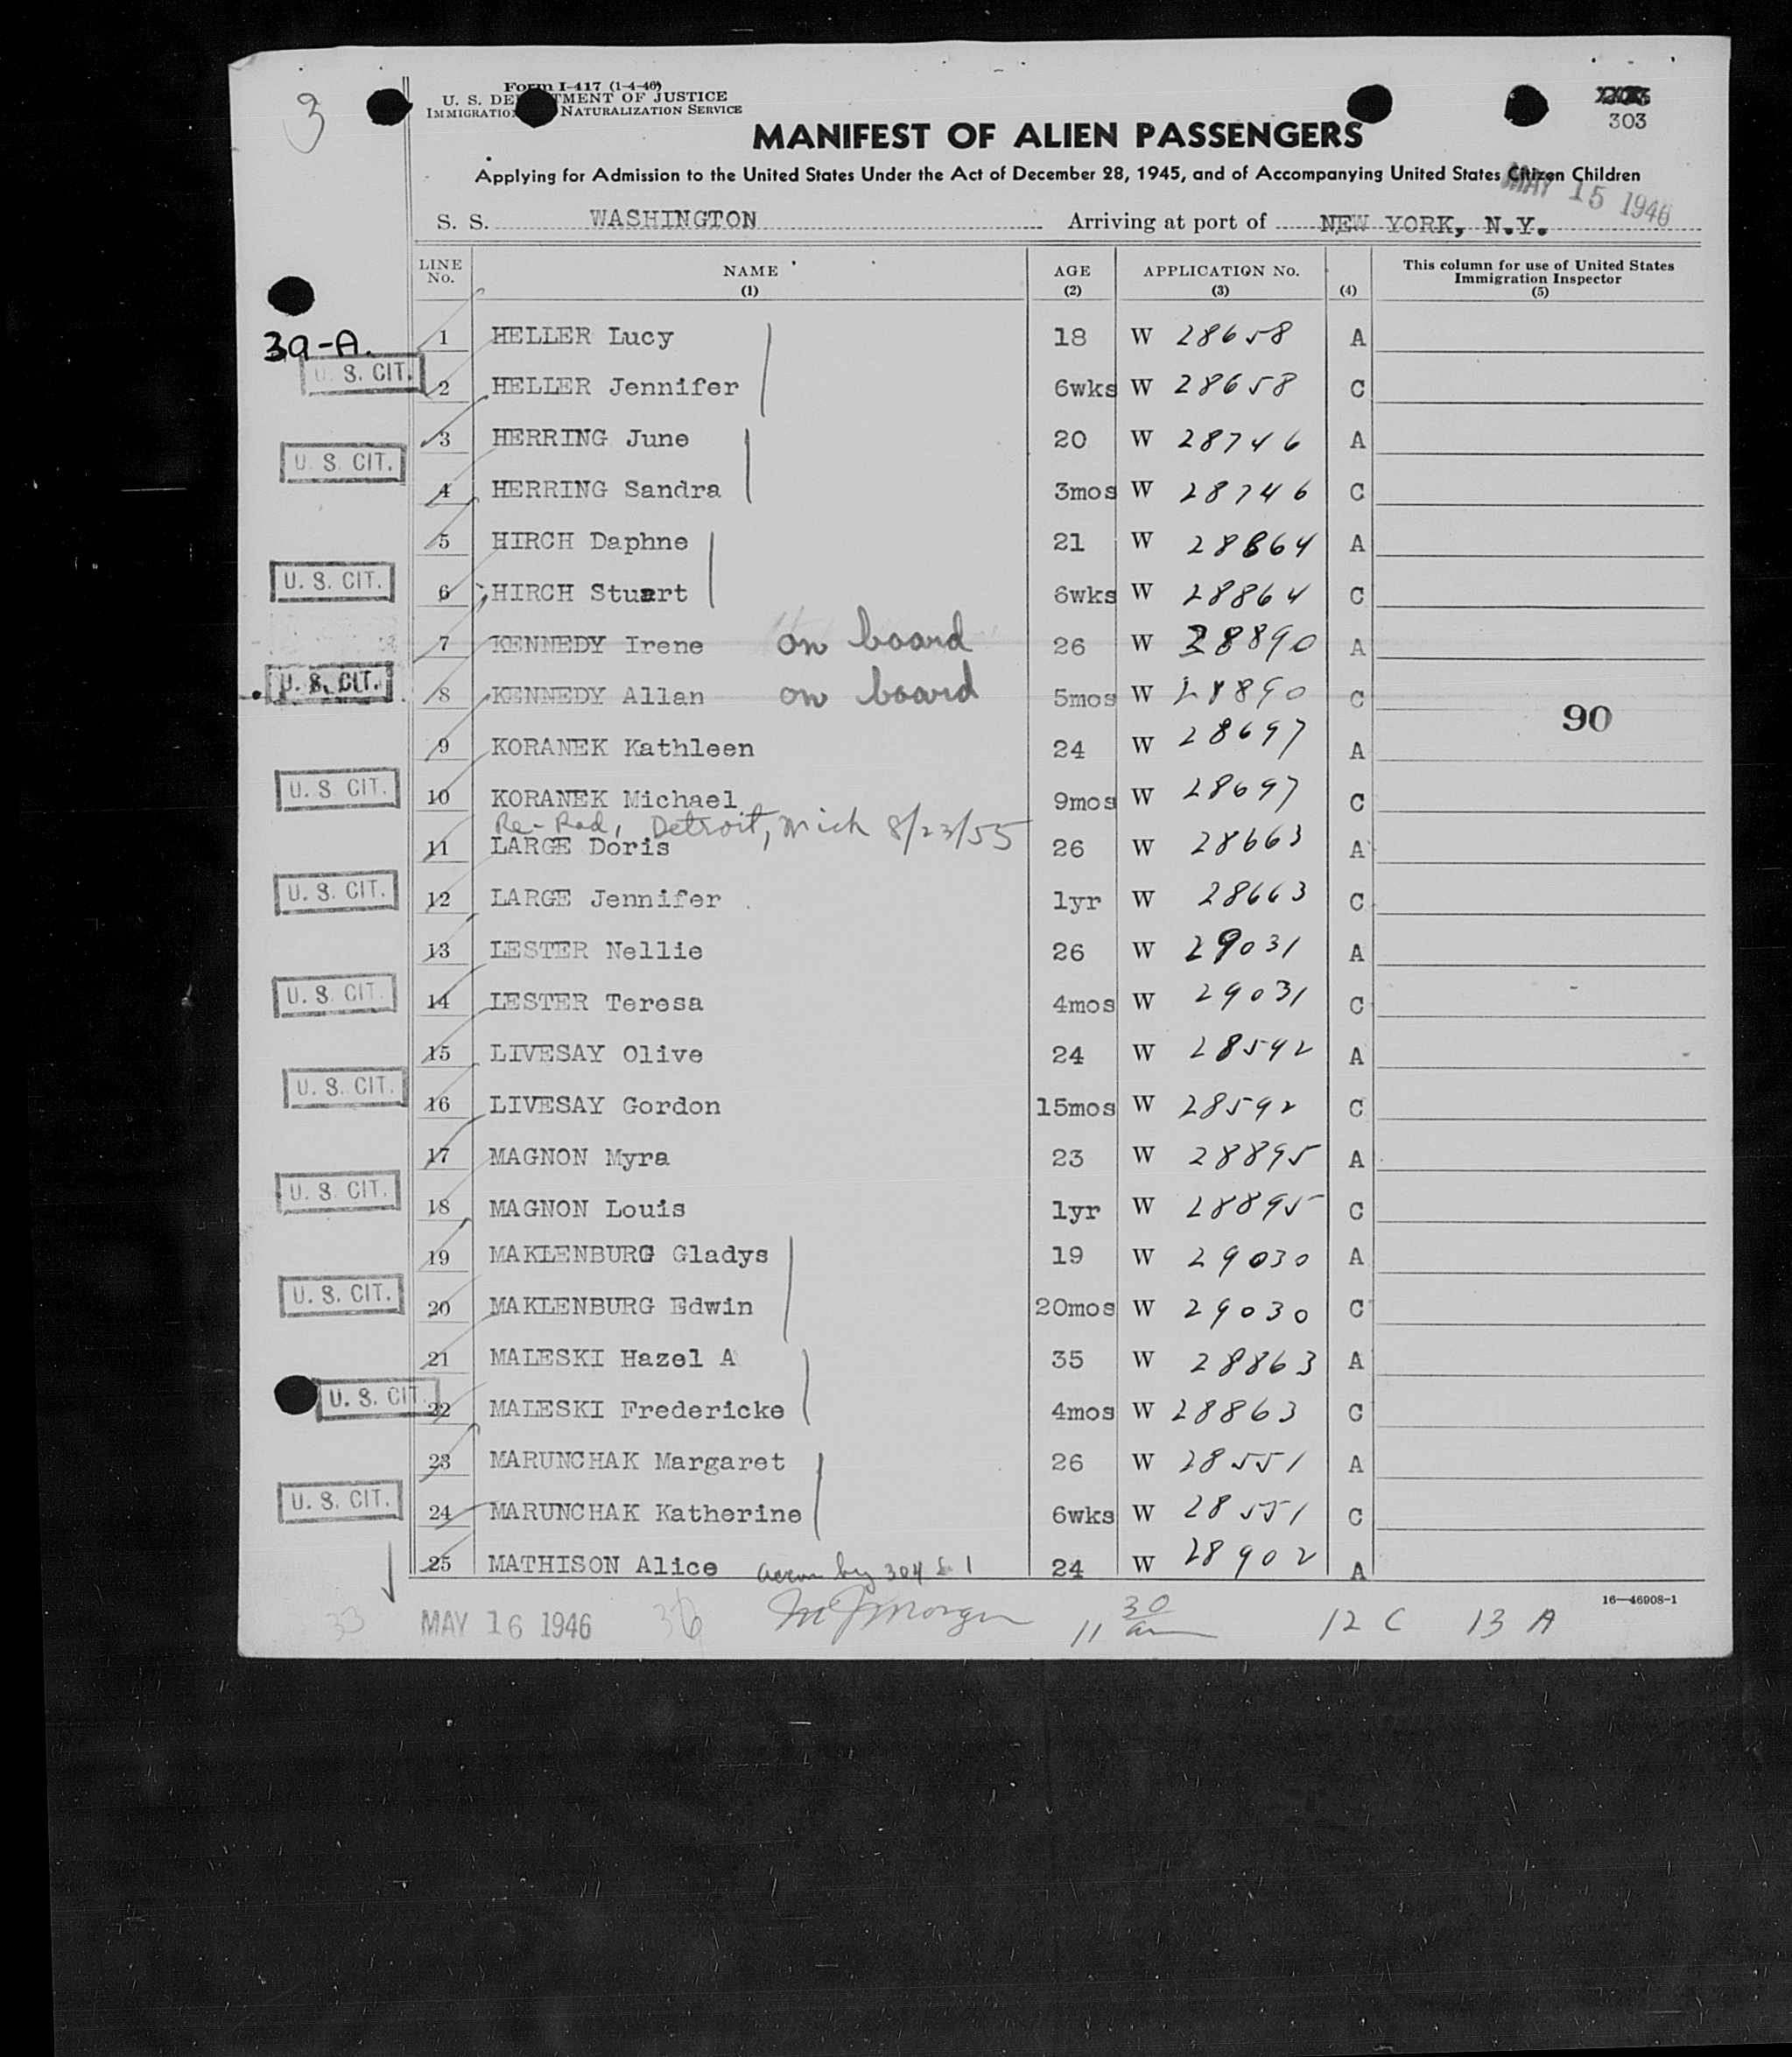 3
Form I-417 (1-4-46)
U. S. DE TMENT OF JUSTICE
IMMIGRATIO NATURALIZATION SERVICE
303
MANIFEST OF ALIEN PASSENGERS
Applying for Admission to the United States Under the Act of December 28, 1945, and of Accompanying United States Citizen Children
MAY 15 1946
S. S. WASHINGTON Arriving at port of NEW YORK, N.Y.
LINE No. NAME (1) AGE (2) APPLICATION No. (3) (4) This column for use of United States Immigration Inspector (5)
39-A.
1 HELLER Lucy 18 W 28658 A
U. S. CIT. 2 HELLER Jennifer 6wks W 28658 C
3 HERRING June 20 W 28746 A
U. S. CIT. 4 HERRING Sandra 3mos W 28746 C
5 HIRCH Daphne 21 W 28864 A
U. S. CIT. 6 HIRCH Stuart 6wks W 28864 C
7 KENNEDY Irene on board 26 W 28890 A
U. S. CIT. 8 KENNEDY Allan on board 5mos W 28890 C
90
9 KORANEK Kathleen 24 W 28697 A
U. S. CIT. 10 KORANEK Michael 9mos W 28697 C
Re-Rad, Detroit, Mich 8/23/55
11 LARGE Doris 26 W 28663 A
U. S. CIT. 12 LARGE Jennifer 1yr W 28663 C
13 LESTER Nellie 26 W 29031 A
U. S. CIT. 14 LESTER Teresa 4mos W 29031 C
15 LIVESAY Olive 24 W 28592 A
U. S. CIT. 16 LIVESAY Gordon 15mos W 28592 C
17 MAGNON Myra 23 W 28895 A
U. S. CIT. 18 MAGNON Louis 1yr W 28895 C
19 MAKLENBURG Gladys 19 W 29030 A
U. S. CIT. 20 MAKLENBURG Edwin 20mos W 29030 C
21 MALESKI Hazel A 35 W 28863 A
U. S. CIT. 22 MALESKI Fredericke 4mos W 28863 C
23 MARUNCHAK Margaret 26 W 28551 A
U. S. CIT. 24 MARUNCHAK Katherine 6wks W 28551 C
25 MATHISON Alice accom by 304 L 1 24 W 28902 A
16—46908-1
33 MAY 16 1946 36 M J Morgan 11 30 am 12 C 13 A